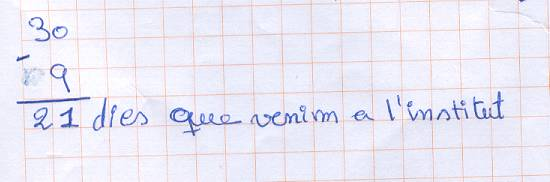 30
- 9
21 dies que venim a l'institut